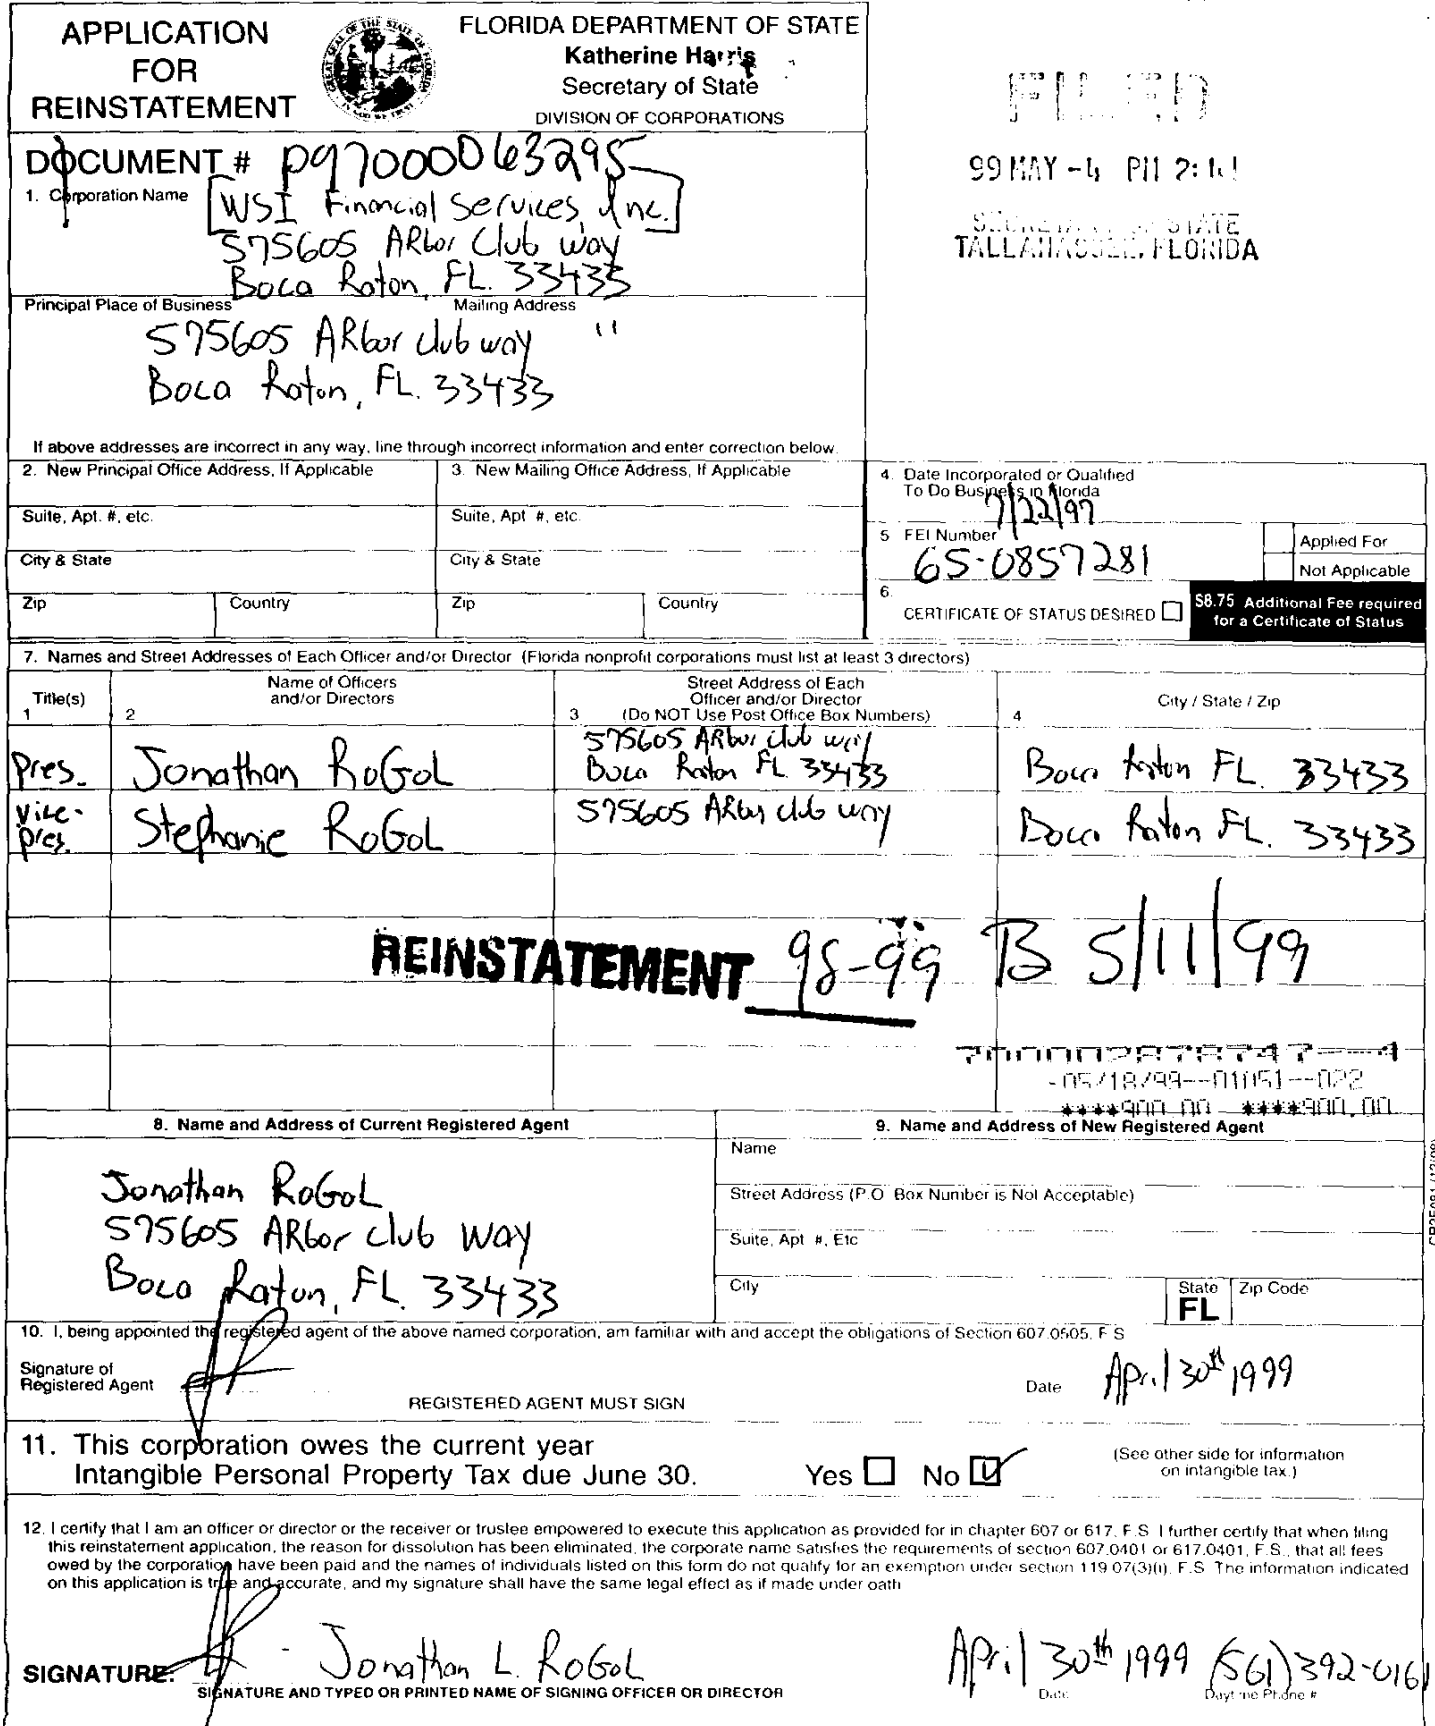 APPLICATION
FOR
REINSTATEMENT
FLORIDA DEPARTMENT OF STATE
Katherine Harris
Secretary of State
DIVISION OF CORPORATIONS
FILED
99 MAY -4 PM 2:
SECRETARY OF STATE
TALLAHASSEE, FLORIDA
DOCUMENT # P97000063295
1. Corporation Name
WSI Financial Services, Inc.
575605 ARbor Club Way
Boca Raton, FL. 33433
Principal Place of Business Mailing Address
575605 ARbor club way "
Boca Raton, FL. 33433
If above addresses are incorrect in any way, line through incorrect information and enter correction below.
2. New Principal Office Address, If Applicable
3. New Mailing Office Address, If Applicable
Suite, Apt. #, etc.
Suite, Apt #, etc.
City & State
City & State
Zip Country
Zip Country
4. Date Incorporated or Qualified
To Do Business in Florida
7/22/97
5 FEI Number
65-0857281
Applied For
Not Applicable
6.
CERTIFICATE OF STATUS DESIRED
$8.75 Additional Fee required
for a Certificate of Status
7. Names and Street Addresses of Each Officer and/or Director (Florida nonprofit corporations must list at least 3 directors)
Title(s)
1
Name of Officers
and/or Directors
2
Street Address of Each
Officer and/or Director
3 (Do NOT Use Post Office Box Numbers)
City / State / Zip
4
Pres. Jonathan RoGoL 575605 ARbor club way
Boca Raton FL 33433
Boca Raton FL. 33433
Vice-
Pres. Stephanie RoGoL 575605 ARbor club way Boca Raton FL. 33433
REINSTATEMENT 98-99 B 5/11/99
700002878747--4
-05/18/99--01051--022
****900.00 ****900.00
8. Name and Address of Current Registered Agent
9. Name and Address of New Registered Agent
Name
Street Address (P.O Box Number is Not Acceptable)
Suite, Apt #, Etc
City
State
FL
Zip Code
Jonathan RoGoL
575605 ARbor club Way
Boca Raton, FL. 33433
10. I, being appointed the registered agent of the above named corporation, am familiar with and accept the obligations of Section 607.0505, F S
Signature of
Registered Agent
REGISTERED AGENT MUST SIGN
Date April 30th 1999
11. This corporation owes the current year
Intangible Personal Property Tax due June 30.
Yes No
(See other side for information
on intangible tax.)
12. I certify that I am an officer or director or the receiver or trustee empowered to execute this application as provided for in chapter 607 or 617, F.S I further certify that when filing
this reinstatement application, the reason for dissolution has been eliminated, the corporate name satisfies the requirements of section 607.0401 or 617.0401, F.S., that all fees
owed by the corporation have been paid and the names of individuals listed on this form do not qualify for an exemption under section 119 07(3)(i), F.S The information indicated
on this application is true and accurate, and my signature shall have the same legal effect as if made under oath
SIGNATURE: - Jonathan L. RoGoL
SIGNATURE AND TYPED OR PRINTED NAME OF SIGNING OFFICER OR DIRECTOR
April 30th 1999 (561)392-0161
Date Daytime Phone #